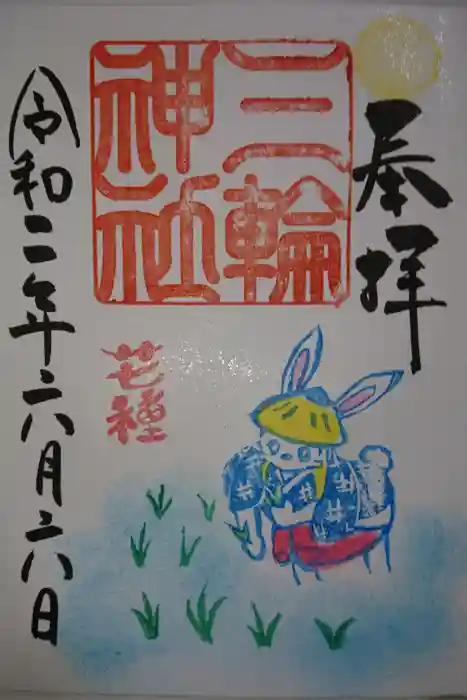 奉拝
三輪
神社
芒種
令和二年六月二六日